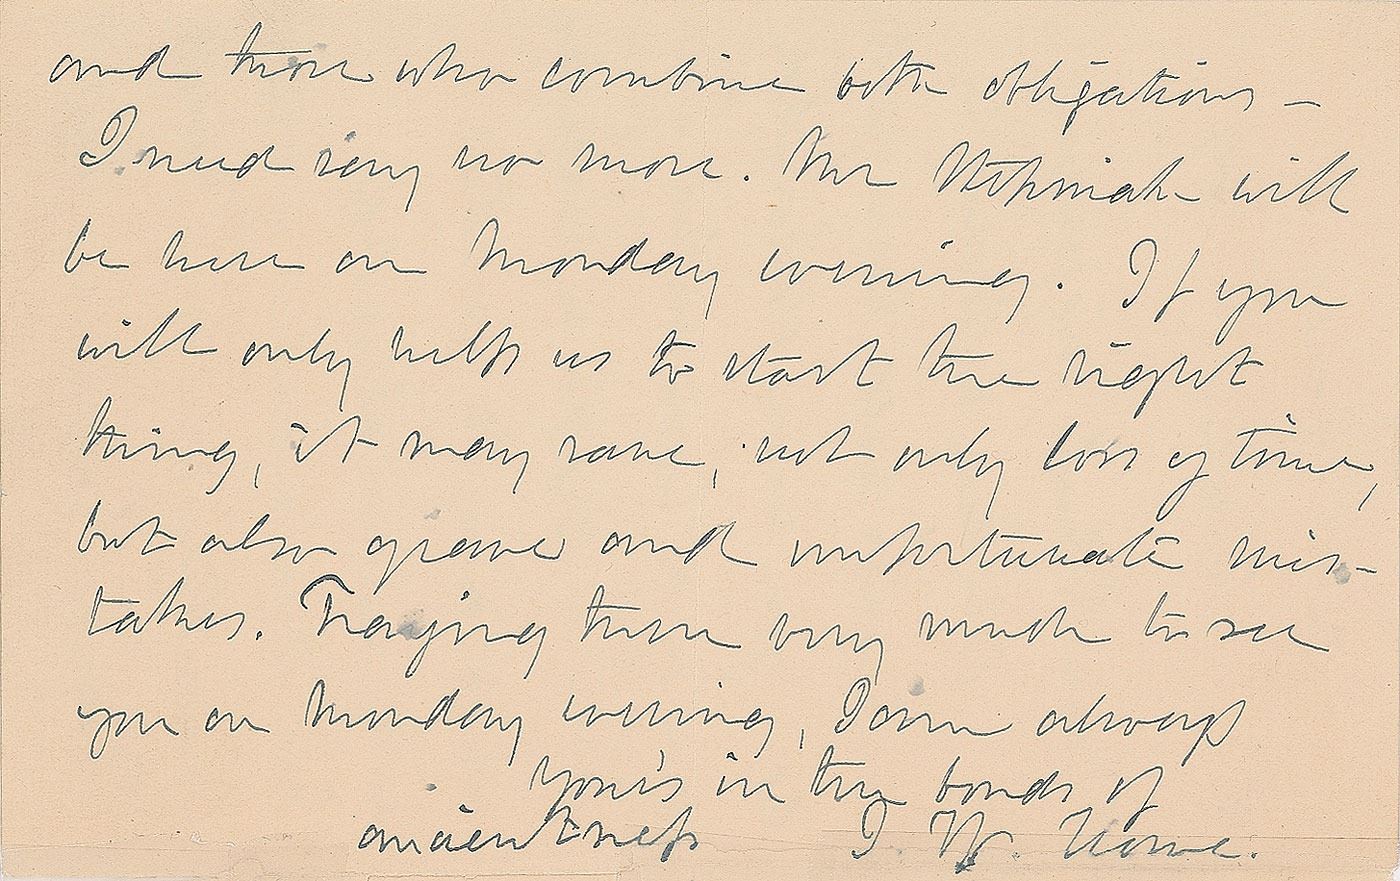 and those who combine both obligations –
I need say no more. Mr Stepniak will
be here on Monday evening. If you
will only help us to start the right
thing, it may save, not only loss of time,
but also grave and unfortunate mis-
takes. Praying then very much to see
you on Monday evening, I am always
your's in the bonds of
ancientness J. W. Howe.